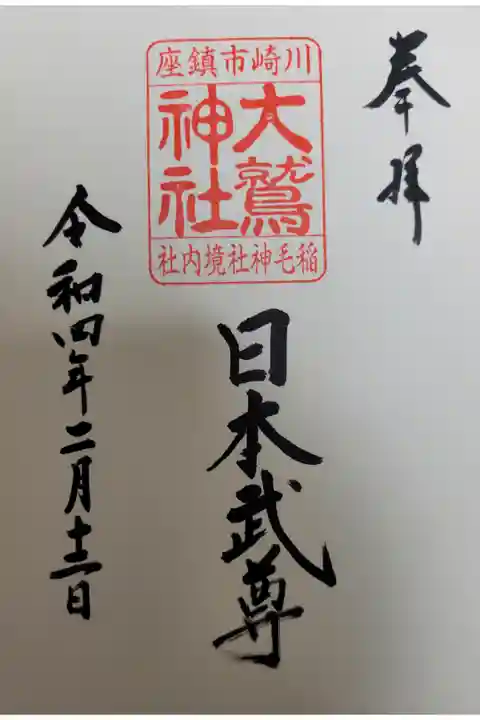 奉拝
川崎市鎮座
大鷲
神社
稲毛神社境内社
日本武尊
令和四年二月十二日